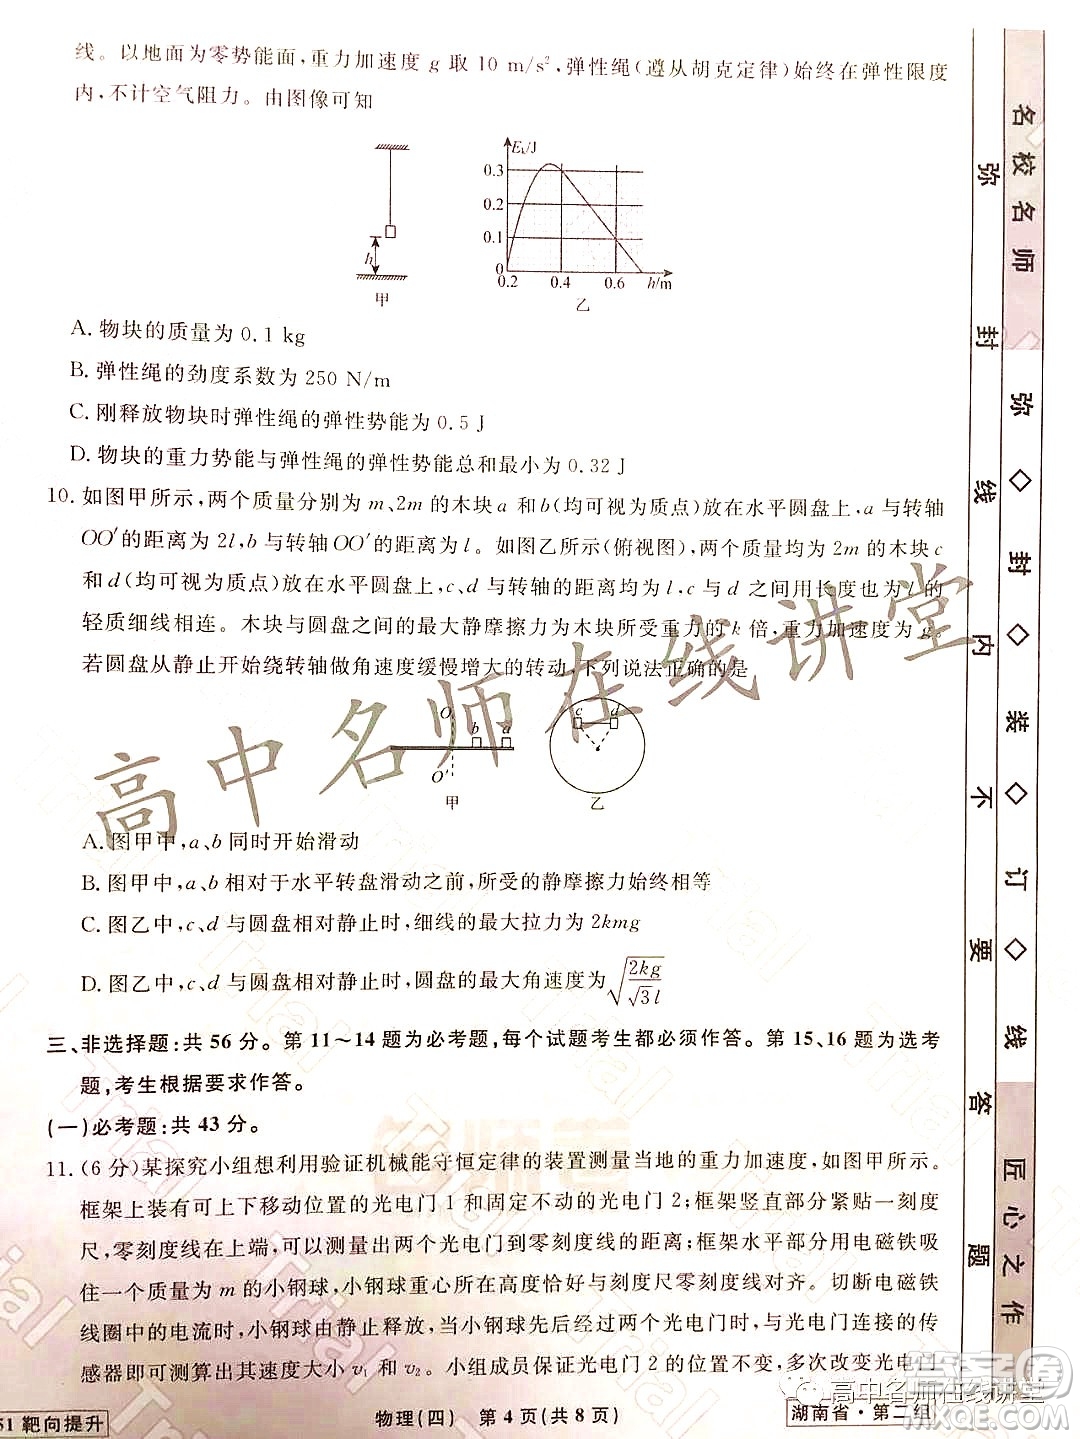 线。以地面为零势能面,重力加速度 g 取 10 m/s²,弹性绳(遵从胡克定律)始终在弹性限度
内,不计空气阻力。由图像可知
Eₖ/J
0.3
0.2
0.1
0
0.2 0.4 0.6 h/m
h
甲 乙
A. 物块的质量为 0.1 kg
B. 弹性绳的劲度系数为 250 N/m
C. 刚释放物块时弹性绳的弹性势能为 0.5 J
D. 物块的重力势能与弹性绳的弹性势能总和最小为 0.32 J
10. 如图甲所示,两个质量分别为 m、2m 的木块 a 和 b(均可视为质点)放在水平圆盘上,a 与转轴
OO′的距离为 2l,b 与转轴 OO′的距离为 l。如图乙所示(俯视图),两个质量均为 2m 的木块 c
和 d(均可视为质点)放在水平圆盘上,c、d 与转轴的距离均为 l,c 与 d 之间用长度也为 l 的
轻质细线相连。木块与圆盘之间的最大静摩擦力为木块所受重力的 k 倍,重力加速度为 g。
若圆盘从静止开始绕转轴做角速度缓慢增大的转动,下列说法正确的是
O b a
O′
甲
c d
乙
A. 图甲中,a、b 同时开始滑动
B. 图甲中,a、b 相对于水平转盘滑动之前,所受的静摩擦力始终相等
C. 图乙中,c、d 与圆盘相对静止时,细线的最大拉力为 2kmg
D. 图乙中,c、d 与圆盘相对静止时,圆盘的最大角速度为√(2kg/√3l)
三、非选择题:共 56 分。第 11～14 题为必考题,每个试题考生都必须作答。第 15、16 题为选考
题,考生根据要求作答。
(一)必考题:共 43 分。
11. (6 分)某探究小组想利用验证机械能守恒定律的装置测量当地的重力加速度,如图甲所示。
框架上装有可上下移动位置的光电门 1 和固定不动的光电门 2;框架竖直部分紧贴一刻度
尺,零刻度线在上端,可以测量出两个光电门到零刻度线的距离;框架水平部分用电磁铁吸
住一个质量为 m 的小钢球,小钢球重心所在高度恰好与刻度尺零刻度线对齐。切断电磁铁
线圈中的电流时,小钢球由静止释放,当小钢球先后经过两个光电门时,与光电门连接的传
感器即可测算出其速度大小 v₁ 和 v₂。小组成员保证光电门 2 的位置不变,多次改变光电门
51 靶向提升
物理(四) 第 4 页(共 8 页)
湖南省·第二组
弥 封 线 内 不 要 答 题
名校名师
弥 ◇ 封 ◇ 装 ◇ 订 ◇ 线
匠心之作
高中名师在线讲堂
名师卷
Trial
高中名师在线讲堂
答案圈
MXQE.COM